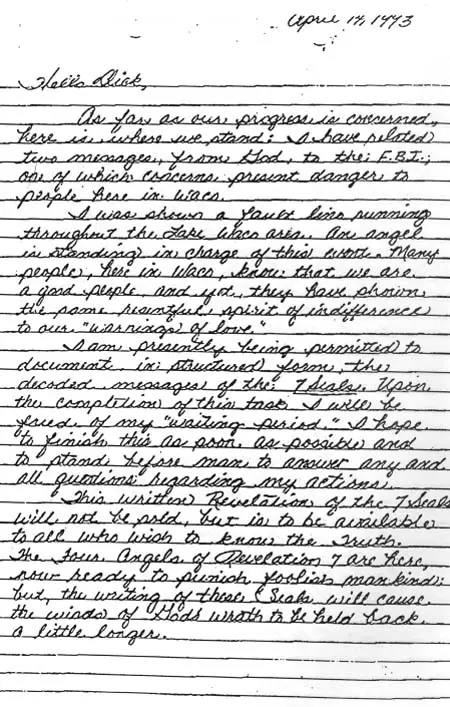 April 14, 1993
Hello Dick,
As far as our progress is concerned,
here is where we stand: I have related
two messages, from God, to the F.B.I.;
one of which concerns present danger to
people here in Waco.
I was shown a fault line running
throughout the Lake Waco area. An angel
is standing in charge of this event. Many
people, here in Waco, know that we are
a good people, and yet, they have shown
the same resentful spirit of indifference
to our "warnings of love."
I am presently being permitted to
document, in structured form, the
decoded messages of the 7 Seals. Upon
the completion of this task, I will be
freed of my "waiting period." I hope
to finish this as soon as possible and
to stand before man to answer any and
all questions regarding my actions.
This written Revelation of the 7 Seals
will not be sold, but is to be available
to all who wish to know the Truth.
The Four Angels of Revelation 7 are here,
now ready to punish foolish mankind;
but, the writing of these Seals will cause
the winds of God's wrath to be held back
a little longer.